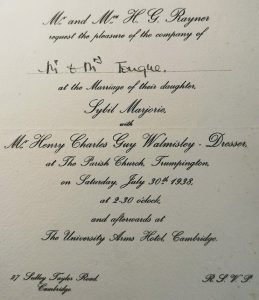 Mr. and Mrs. H. G. Rayner
request the pleasure of the company of
Mr & Mrs Tongue.
at the Marriage of their daughter,
Sybil Marjorie,
with
Mr. Henry Charles Guy Walmisley-Dresser,
at The Parish Church, Trumpington,
on Saturday, July 30th 1938,
at 2-30 o'clock,
and afterwards at
The University Arms Hotel, Cambridge.
27 Sedley Taylor Road,
Cambridge.
R.S.V.P.